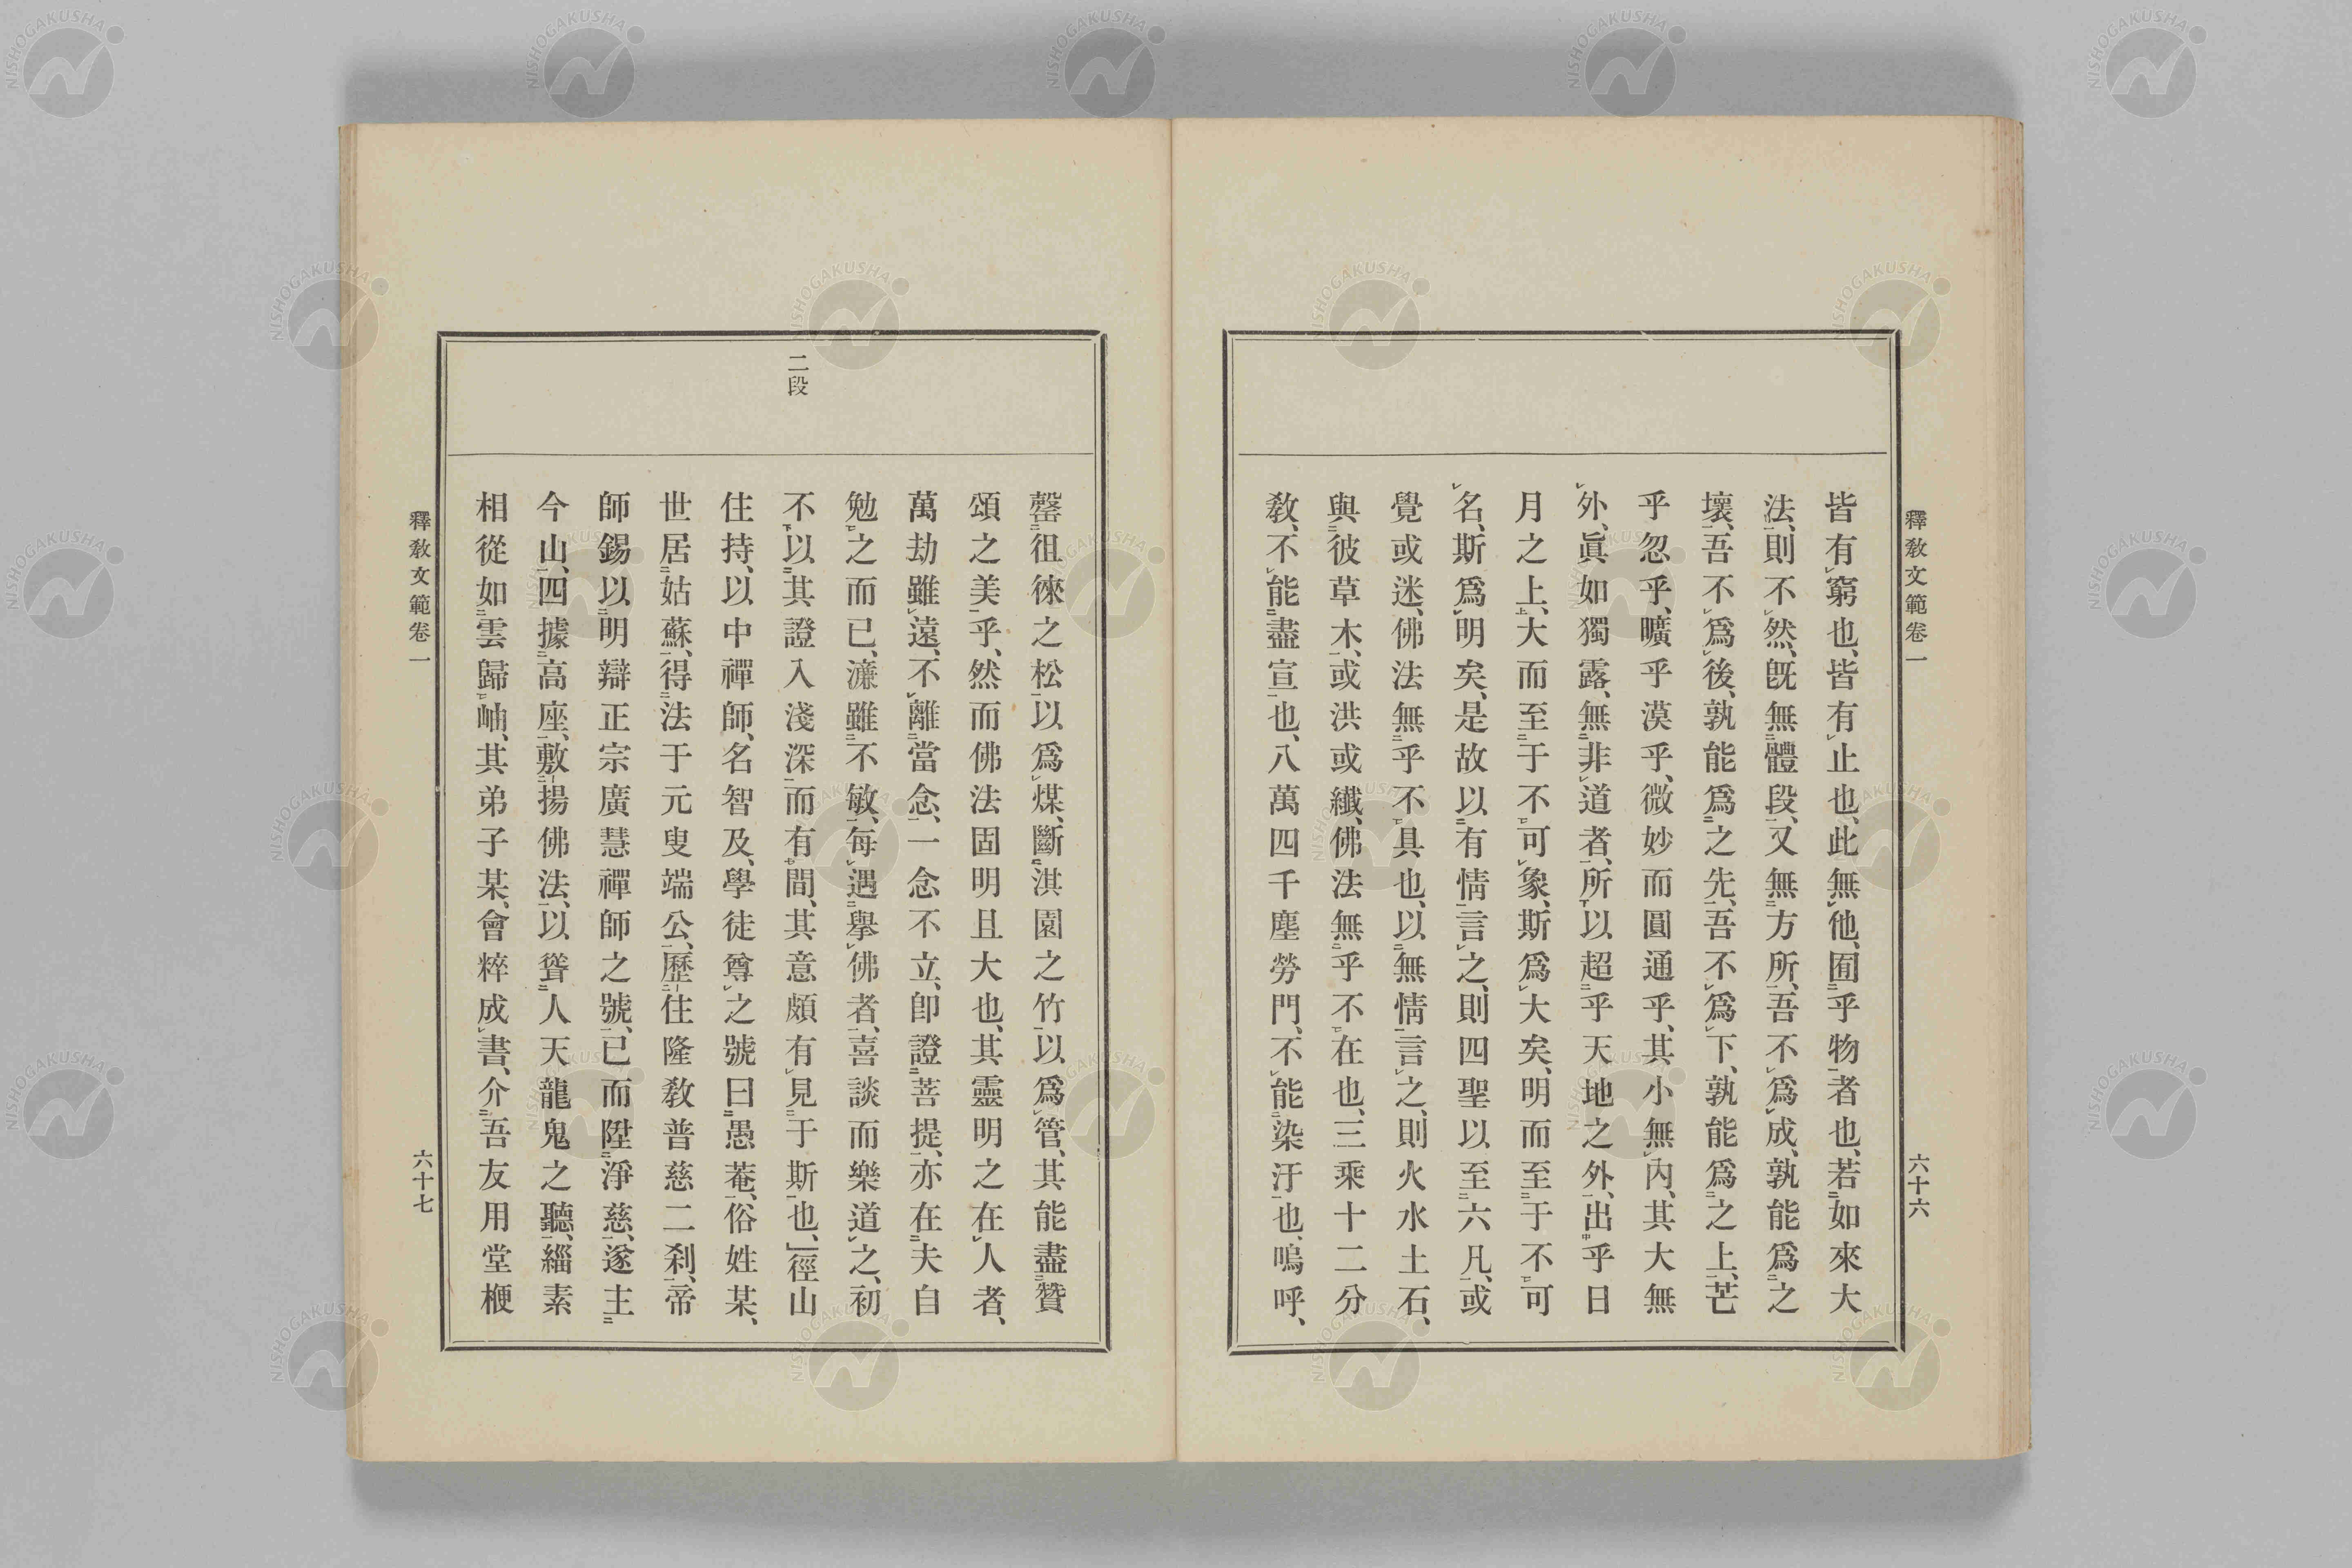 釋敎文範卷一
六十六
皆有窮也、皆有止也、此無他、囿乎物者也、若如來大
法、則不然、旣無體段、又無方所、吾不爲成、孰能爲之
壞、吾不爲後、孰能爲之先、吾不爲下、孰能爲之上、芒
乎忽乎、曠乎漠乎、微妙而圓通乎、其小無內、其大無
外、眞如獨露、無非道者、所以超乎天地之外、出乎日
月之上、大而至于不可象、斯爲大矣、明而至于不可
名、斯爲明矣、是故以有情言之、則四聖以至六凡、或
覺或迷、佛法無乎不具也、以無情言之、則火水土石、
與彼草木、或洪或纖、佛法無乎不在也、三乘十二分
敎、不能盡宣也、八萬四千塵勞門、不能染汙也、嗚呼、
罄徂徠之松以爲煤、斷淇園之竹以爲管、其能盡贊
頌之美乎、然而佛法固明且大也、其靈明之在人者、
萬劫雖遠、不離當念、一念不立、卽證菩提、亦在夫自
勉之而已、濂雖不敏、每遇擧佛者、喜談而樂道之、初
二段
不以其證入淺深而有間、其意頗有見于斯也、」徑山
住持、以中禪師、名智及、學徒尊之號曰愚菴、俗姓某、
世居姑蘇、得法于元叟端公、歷住隆敎普慈二刹、帝
師錫以明辯正宗廣慧禪師之號、已而陞淨慈、遂主
今山、四據高座、敷揚佛法、以聳人天龍鬼之聽、緇素
相從如雲歸岫、其弟子某、會粹成書、介吾友用堂楩
釋敎文範卷一
六十七
NISHOGAKUSHA